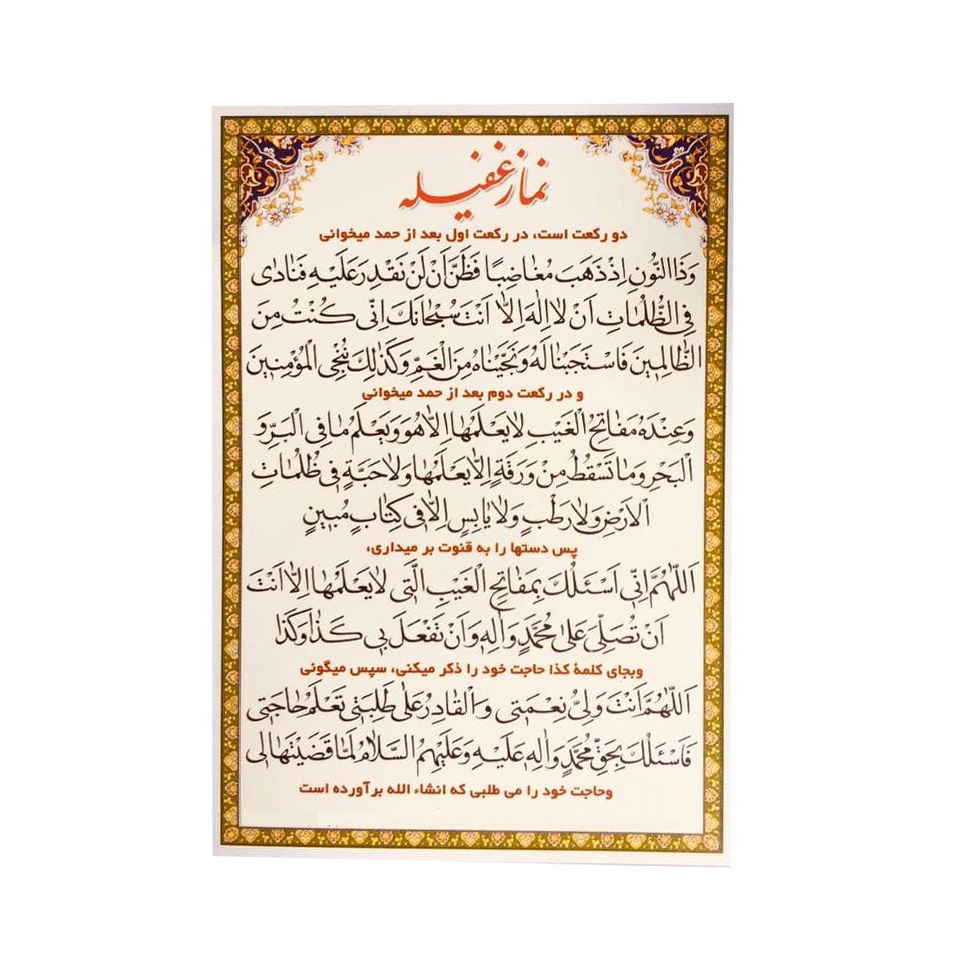 نماز غفیله
دو رکعت است، در رکعت اول بعد از حمد میخوانی
وَذَا النُّونِ اِذْ ذَهَبَ مُغَاضِبًا فَظَنَّ اَنْ لَنْ نَقْدِرَ عَلَیْهِ فَنَادٰی
فِی الظُّلُمَاتِ اَنْ لَا اِلٰهَ اِلَّا اَنْتَ سُبْحَانَكَ اِنِّی كُنْتُ مِنَ
الظَّالِمِینَ فَاسْتَجَبْنَا لَهُ وَنَجَّیْنَاهُ مِنَ الْغَمِّ وَكَذٰلِكَ نُنْجِی الْمُؤْمِنِینَ
و در رکعت دوم بعد از حمد میخوانی
وَعِنْدَهُ مَفَاتِحُ الْغَیْبِ لَا یَعْلَمُهَا اِلَّا هُوَ وَیَعْلَمُ مَا فِی الْبَرِّ وَ
الْبَحْرِ وَمَا تَسْقُطُ مِنْ وَرَقَةٍ اِلَّا یَعْلَمُهَا وَلَا حَبَّةٍ فِی ظُلُمَاتِ
الْاَرْضِ وَلَا رَطْبٍ وَلَا یَابِسٍ اِلَّا فِی كِتَابٍ مُبِینٍ
پس دستها را به قنوت بر میداری،
اَللّٰهُمَّ اِنِّی اَسْئَلُكَ بِمَفَاتِحِ الْغَیْبِ الَّتِی لَا یَعْلَمُهَا اِلَّا اَنْتَ
اَنْ تُصَلِّیَ عَلٰی مُحَمَّدٍ وَاٰلِهِ وَاَنْ تَفْعَلَ بِی كَذَا وَكَذَا
وبجای کلمهٔ کذا حاجت خود را ذکر میکنی، سپس میگوئی
اَللّٰهُمَّ اَنْتَ وَلِیُّ نِعْمَتِی وَالْقَادِرُ عَلٰی طَلِبَتِی تَعْلَمُ حَاجَتِی
فَاَسْئَلُكَ بِحَقِّ مُحَمَّدٍ وَاٰلِهِ عَلَیْهِ وَعَلَیْهِمُ السَّلَامُ لَمَّا قَضَیْتَهَا لِی
وحاجت خود را می طلبی که انشاء الله برآورده است